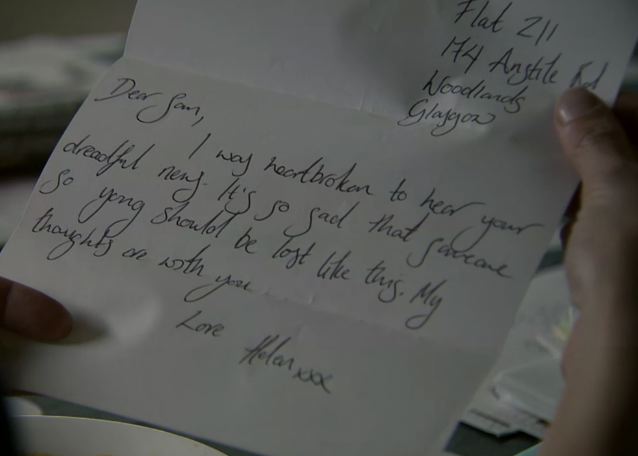 Flat 2/1
174 Anstile Rd
Woodlands
Glasgow
Dear Sam,
I was heartbroken to hear your
dreadful news. It's so sad that someone
so young should be lost like this. My
thoughts are with you
Love Helen xxx